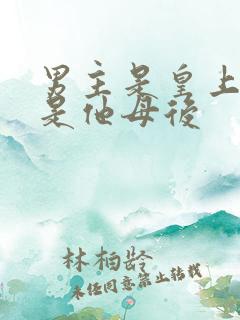 男主是皇上
是他母後
林栢龄
未经同意禁止转载